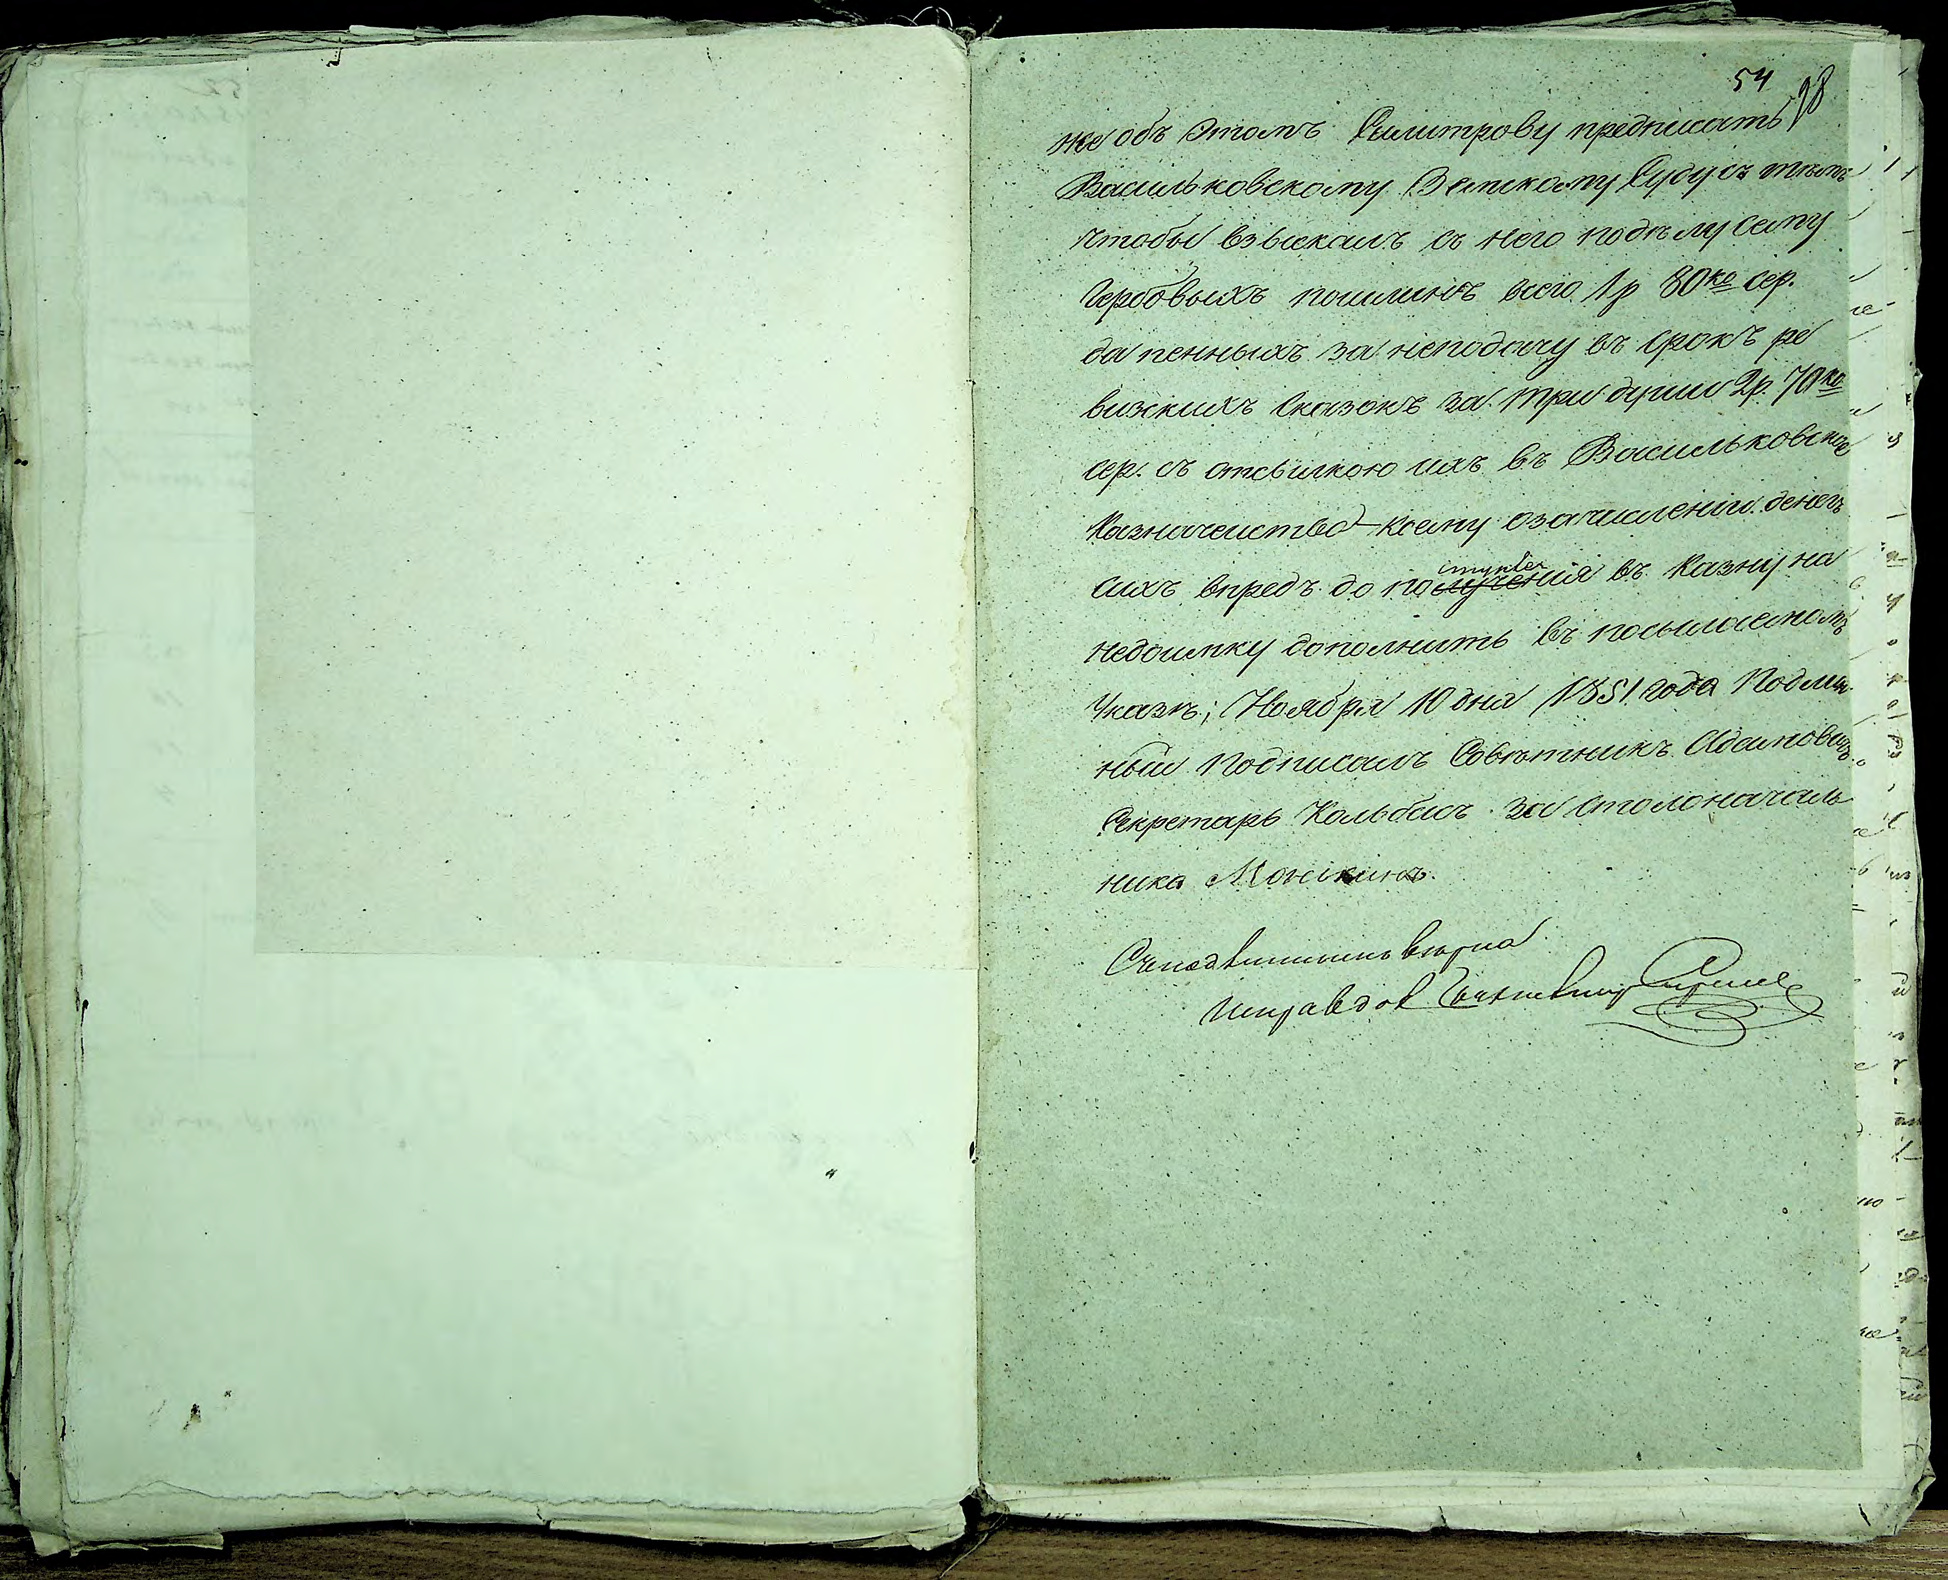 54
98
же объ этомъ Селитрову предписать
Васильковскому Земскому Суду съ тѣмъ
чтобы взыскалъ съ него подѣлу сему
Гербовыхъ пошлинъ всего 1 р 80 ко сер.
да пенныхъ за неподачу въ срокъ ре
визкихъ сказокъ за три души 2 р. 70 ко
сер. съ отсылкою ихъ въ Васильковское
Казначейство коему озачисленіи денегъ
сихъ впредъ до поступленія въ Казну на
недоимку дополнить въ посылаемомъ
Указѣ; Ноября 10 дня 1851 года Подлин
ный Подписалъ Совѣтникъ
Секретарь Кольбасъ. за столоначаль
ника
Съ подлиннымъ вѣрно